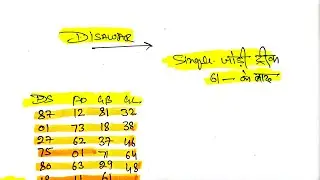 DISAWAR
Single जोड़ी ट्रिक
61 — के बाद
DS FD GB GL
87 12 81 32
01 73 18 38
27 62 37 46
75 01 71 64
80 63 29 48